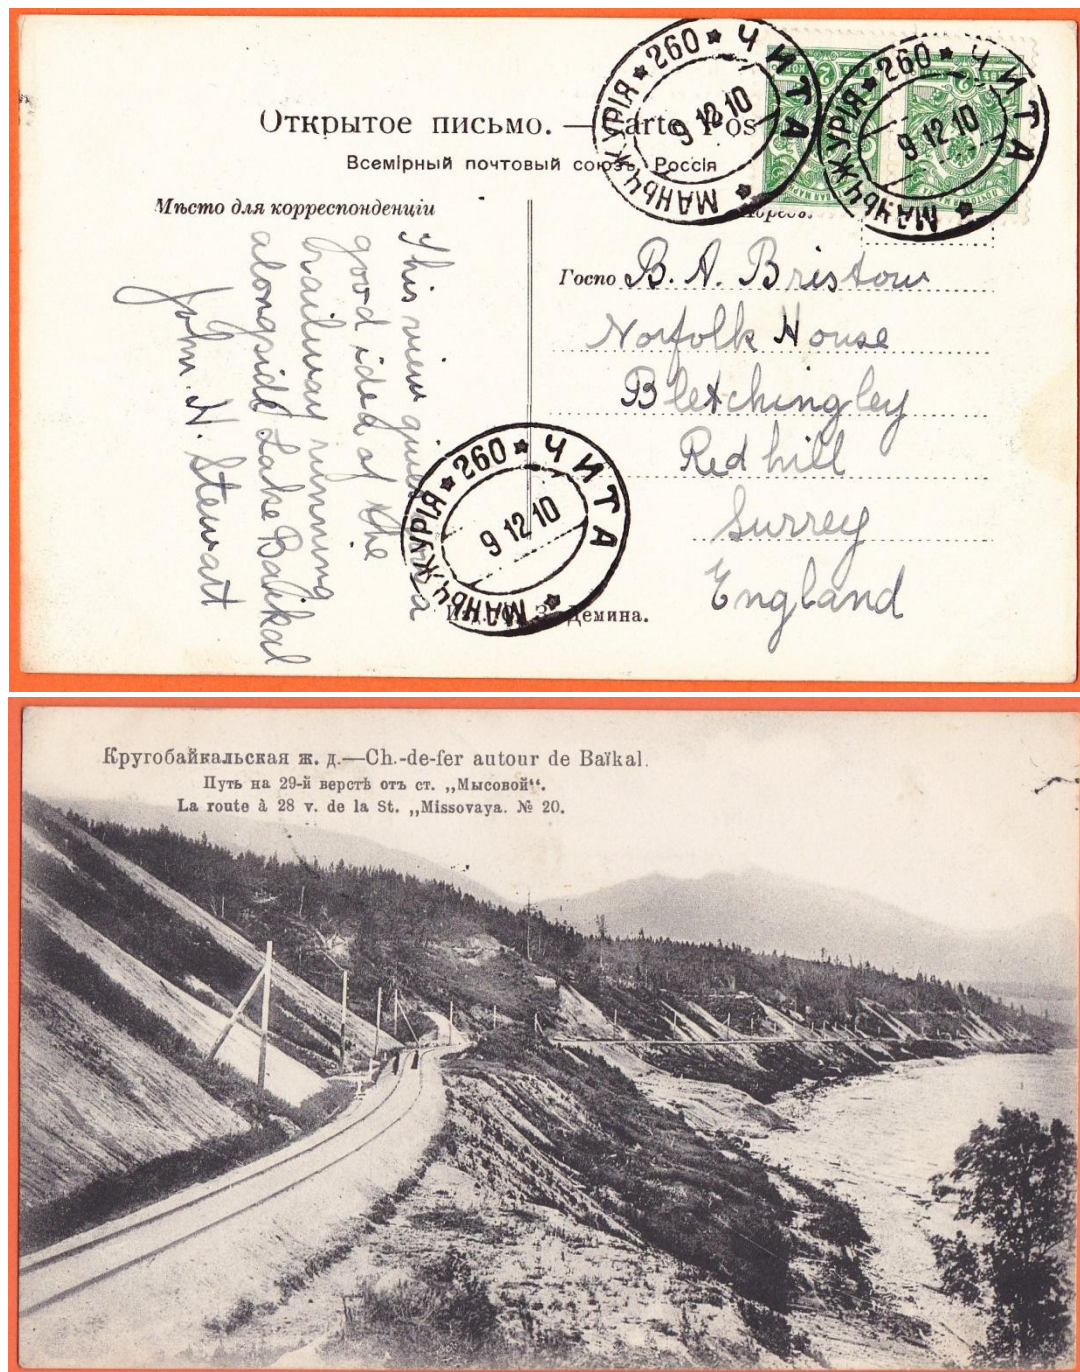 Открытое письмо. — Carte Pos
Всемірный почтовый союзъ, Россія
ЧИТА * МАНЬЧЖУРІЯ * 260 *
9 12 10
ЧИТА * МАНЬЧЖУРІЯ * 260 *
9 12 10
Мѣсто для корреспонденціи
This view gives a
good idea of the
railway running
alongside Lake Baikal
John. N. Stewart
Госпо B. A. Bristow
Norfolk House
Bletchingley
Redhill
Surrey
England
ЧИТА * МАНЬЧЖУРІЯ * 260 *
9 12 10
Демина.
Кругобайкальская ж. д.—Ch.-de-fer autour de Baïkal.
Путь на 29-й верстѣ отъ ст. „Мысовой“.
La route à 28 v. de la St. „Missovaya. № 20.